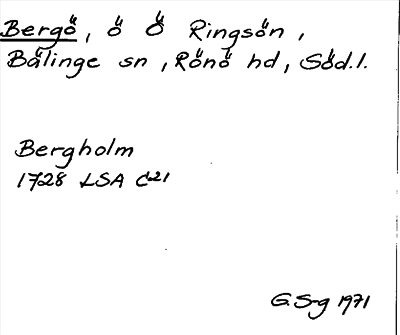 Bergö, ö Ö Ringsön,
Bälinge sn, Rönö hd, Söd.l.
Bergholm
1728 LSA C21
G.S-g 1971